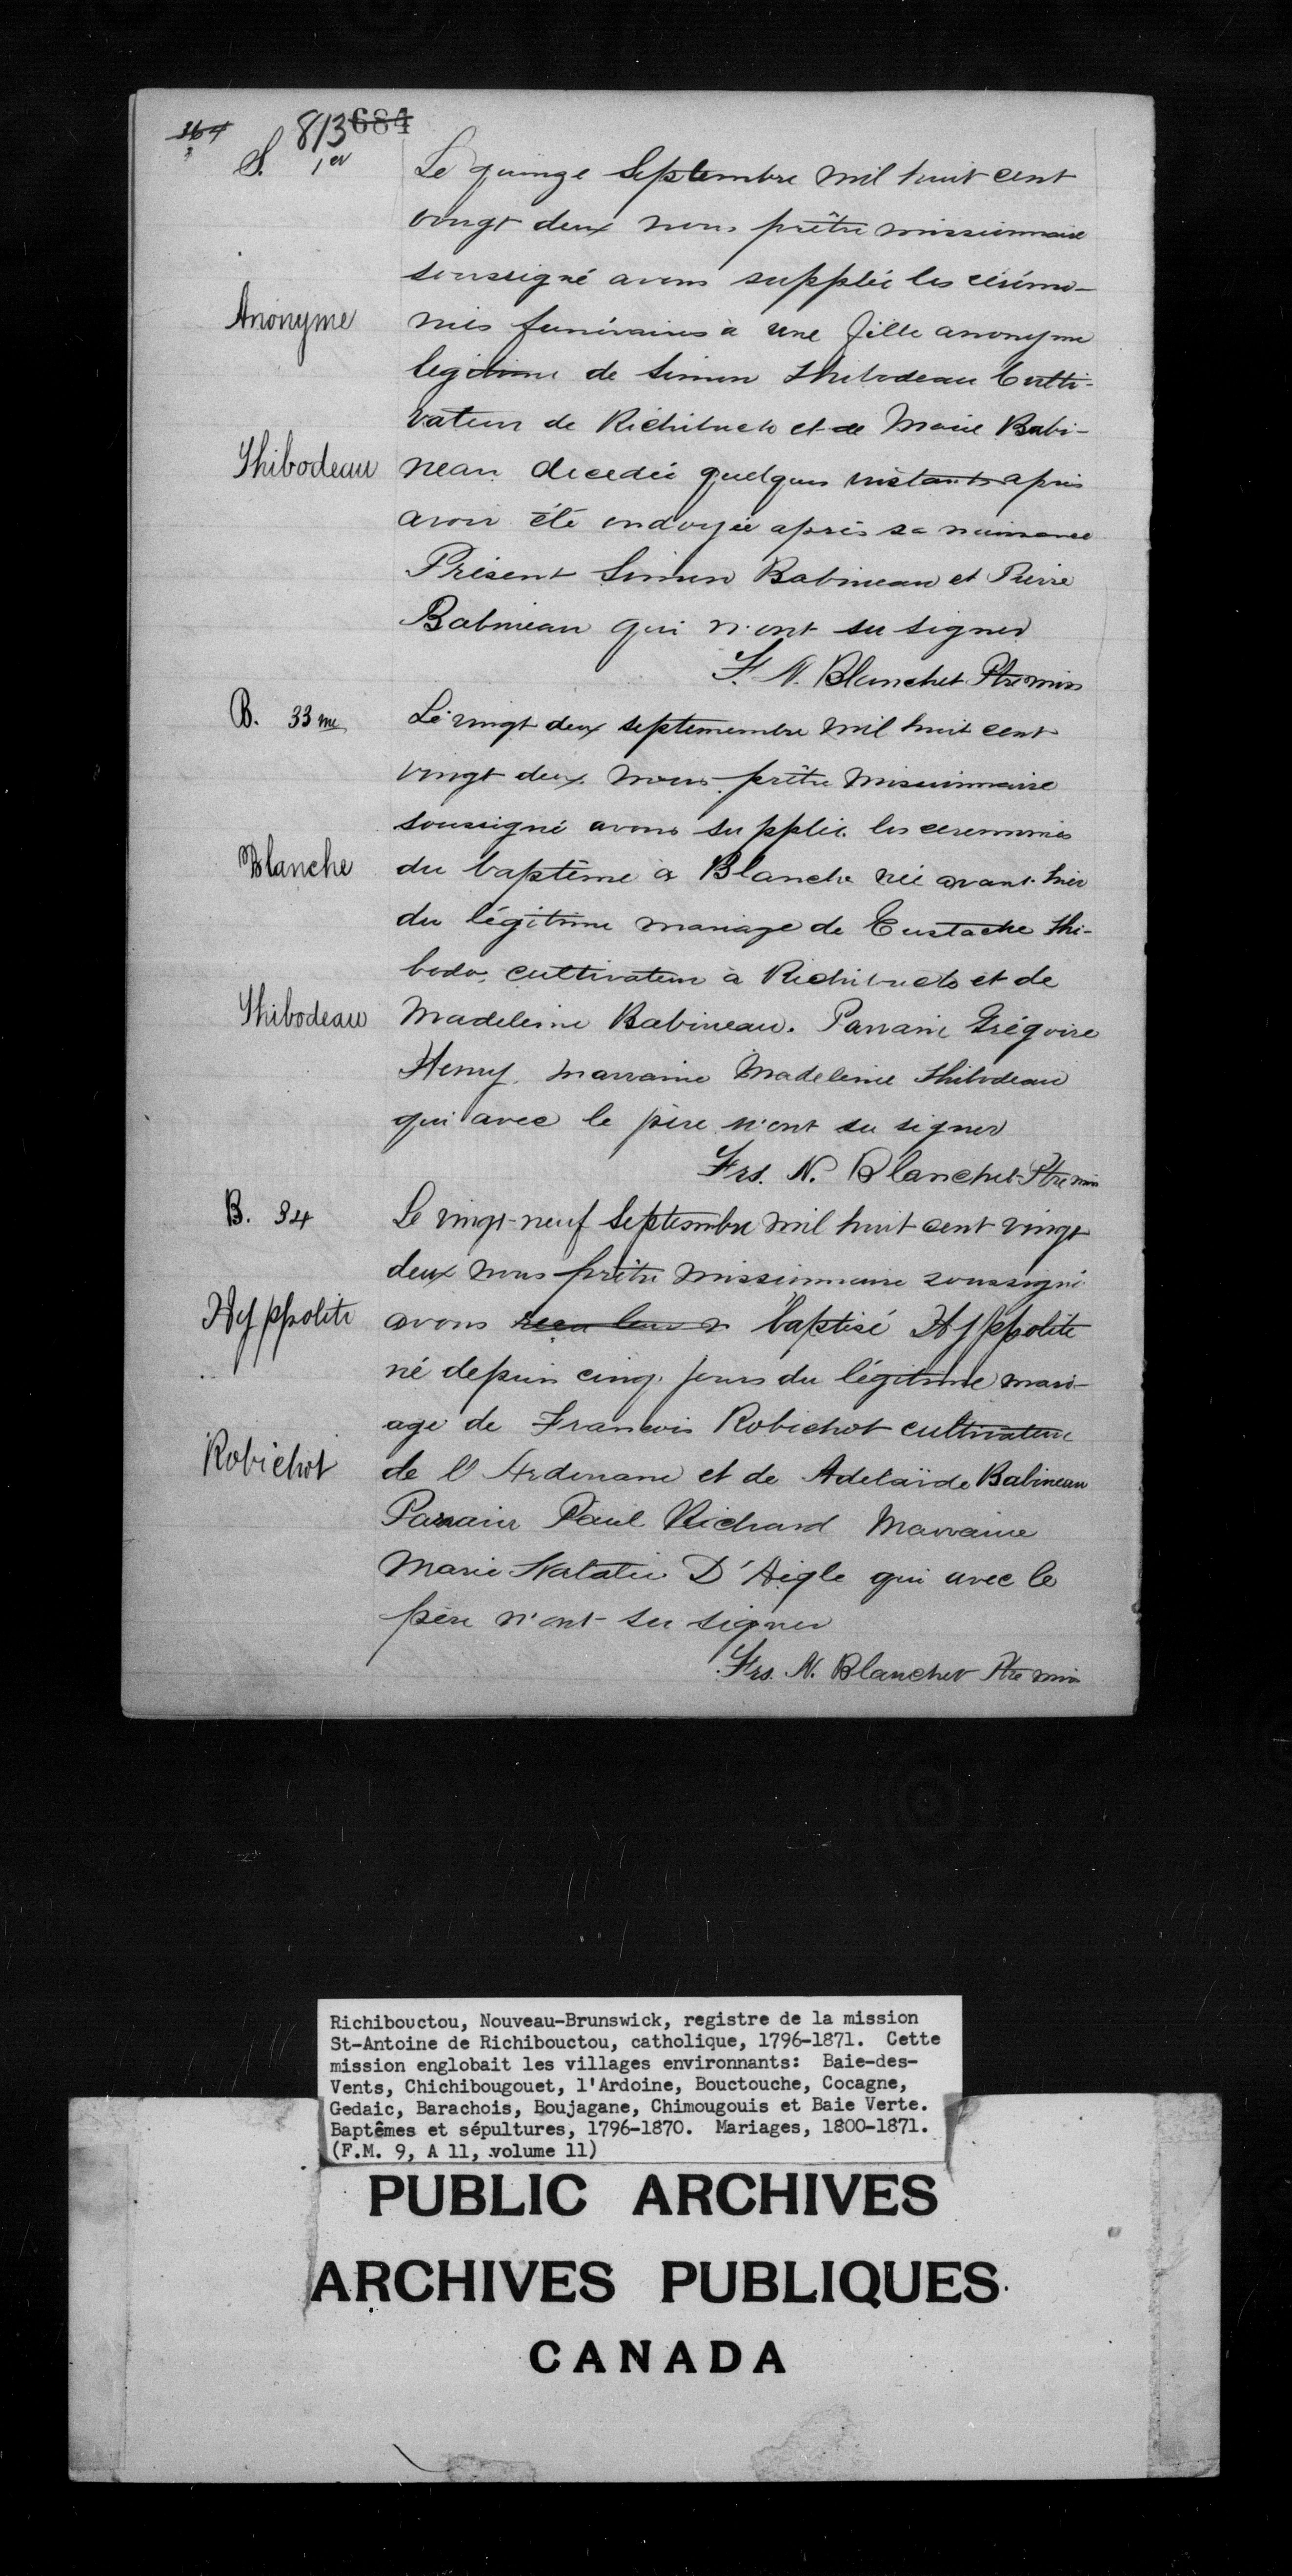 364
813 684
S. 1er
Le quinze Septembre mil huit cent
vingt deux nous prêtre missionnaire
soussigné avons supplée les cérémo-
Anonyme
nies funéraires à une fille anonyme
legitime de Simon Thibodeau Culti-
vateur de Richibucto et de Marie Babi-
Thibodeau
neau decedée quelques instants apris
avoir été ondoyée après sa naissance
Présent Simon Babineau et Pierre
Babineau qui n'ont su signer
F. N. Blanchet Ptre miss
B. 33me
Le vingt deux septemembre mil huit cent
vingt deux nous prêtre missionnaire
soussigné avons supplée les ceremonies
Blanche
du baptême à Blanche née avant-hier
du légitime mariage de Eustache Thi-
bodo, cultivateur à Richibucto et de
Thibodeau
Madeleine Babineau. Parrain Grégoire
Henry, marraine Madeleine Thibodeau
qui avec le père n'ont su signer
Frs. N. Blanchet Ptre miss
B. 34
Le vingt-neuf Septembre mil huit cent vingt
deux nous prêtre missionnaire soussigné
Hyppolite
avons baptisé Hyppolite
né depuis cinq jours du légitime mari-
age de Francois Robichot cultivateur
Robichot
de l'Ardouane et de Adelaïde Babineau
Parrain Paul Richard Marraine
Marie Natalie D'Aigle qui avec le
père n'ont su signer
Frs. N. Blanchet Ptre miss
Richibouctou, Nouveau-Brunswick, registre de la mission
St-Antoine de Richibouctou, catholique, 1796-1871. Cette
mission englobait les villages environnants: Baie-des-
Vents, Chichibougouet, l'Ardoine, Bouctouche, Cocagne,
Gedaic, Barachois, Boujagane, Chimougouis et Baie Verte.
Baptêmes et sépultures, 1796-1870. Mariages, 1800-1871.
(F.M. 9, A 11, volume 11)
PUBLIC ARCHIVES
ARCHIVES PUBLIQUES
CANADA